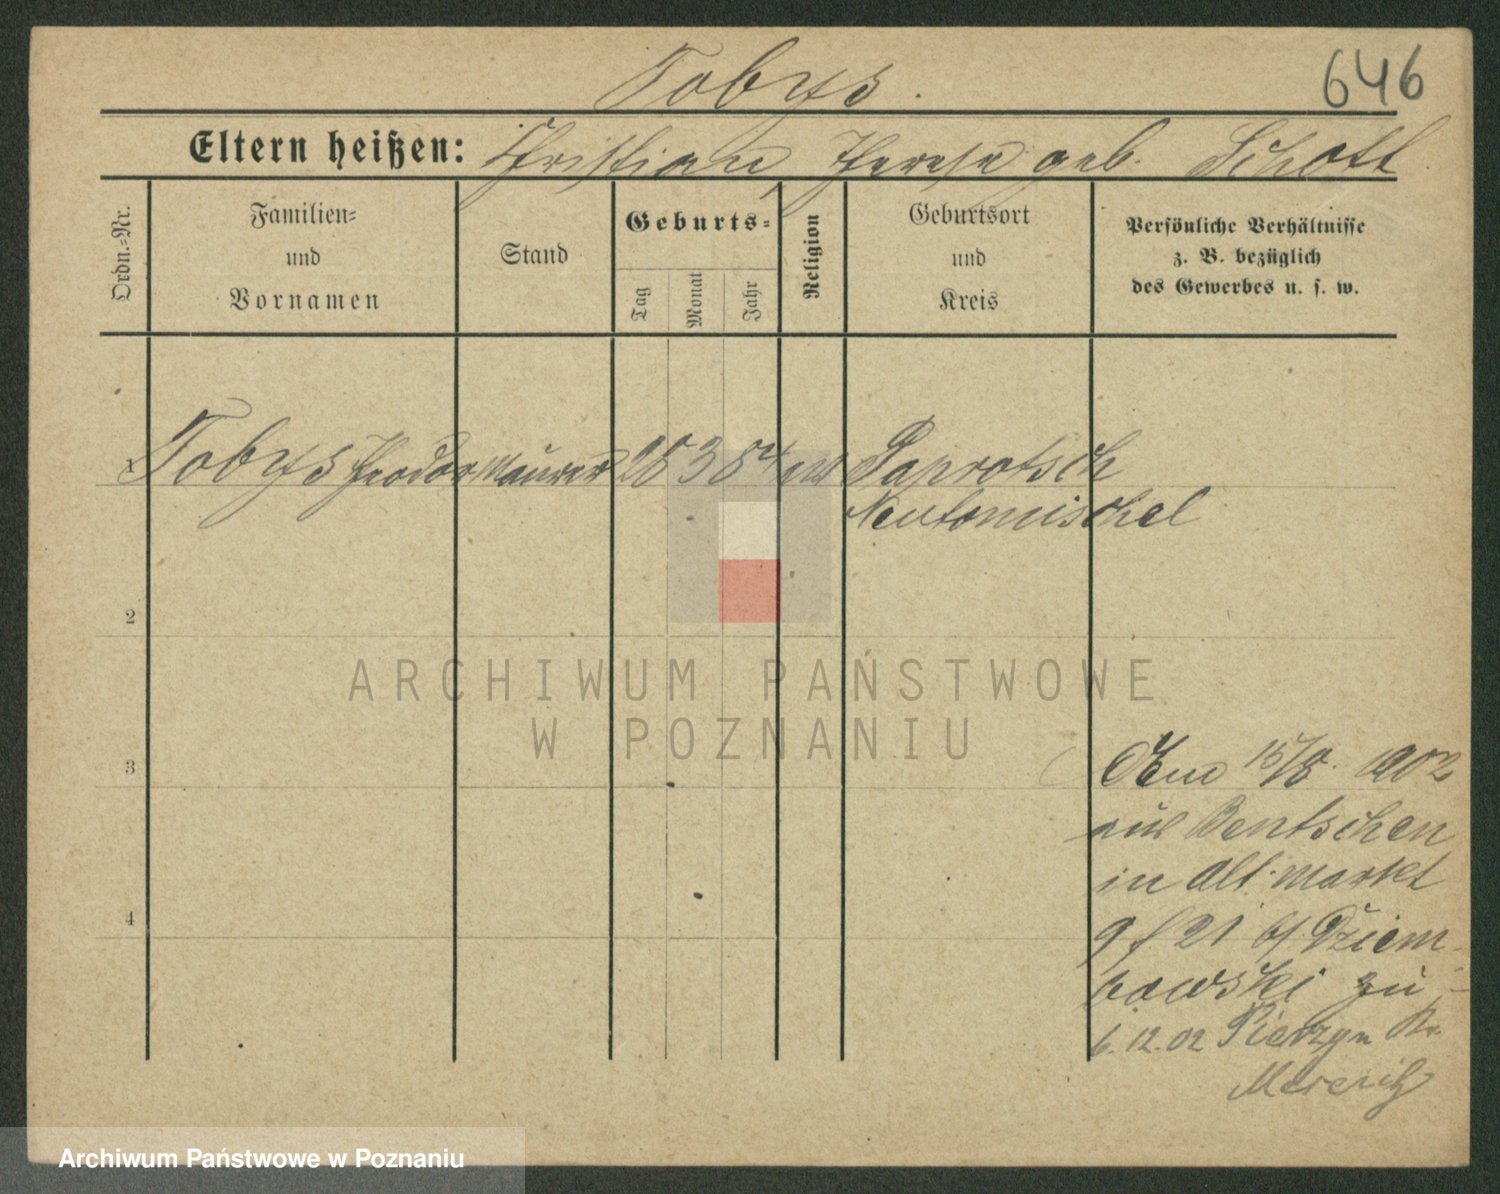 Tobys.
646
Eltern heißen: Christian, Therese geb. Schott
Ordn.=Nr.
Familien=
und
Vornamen
Stand
Geburts=
Tag
Monat
Jahr
Religion
Geburtsort
und
Kreis
Persönliche Verhältnisse
z. B. bezüglich
des Gewerbes u. s. w.
1 Tobys Theodor Maurer 28 3 84 Paprotsch
Neutomischel
2
ARCHIWUM PAŃSTWOWE
W POZNANIU
3
15/8. 1902
aus Bentschen
in Alt. Markt
4
9 f 21 b/ Dziem-
bowski zu-
6.12.02 Kr.
Meseritz
Archiwum Państwowe w Poznaniu